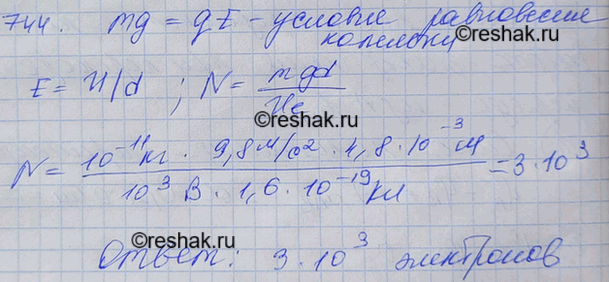 744. mg = qE - условие равновесие
капельки
©reshak.ru
E = U/d ; N = mgd / Ue
©reshak.ru
N = 10⁻¹¹кг · 9,8 м/с² · 4,8 · 10⁻³ м / 10³ В · 1,6 · 10⁻¹⁹ Кл = 3 · 10³
©reshak.ru
Ответ: 3 · 10³ электронов
©reshak.ru